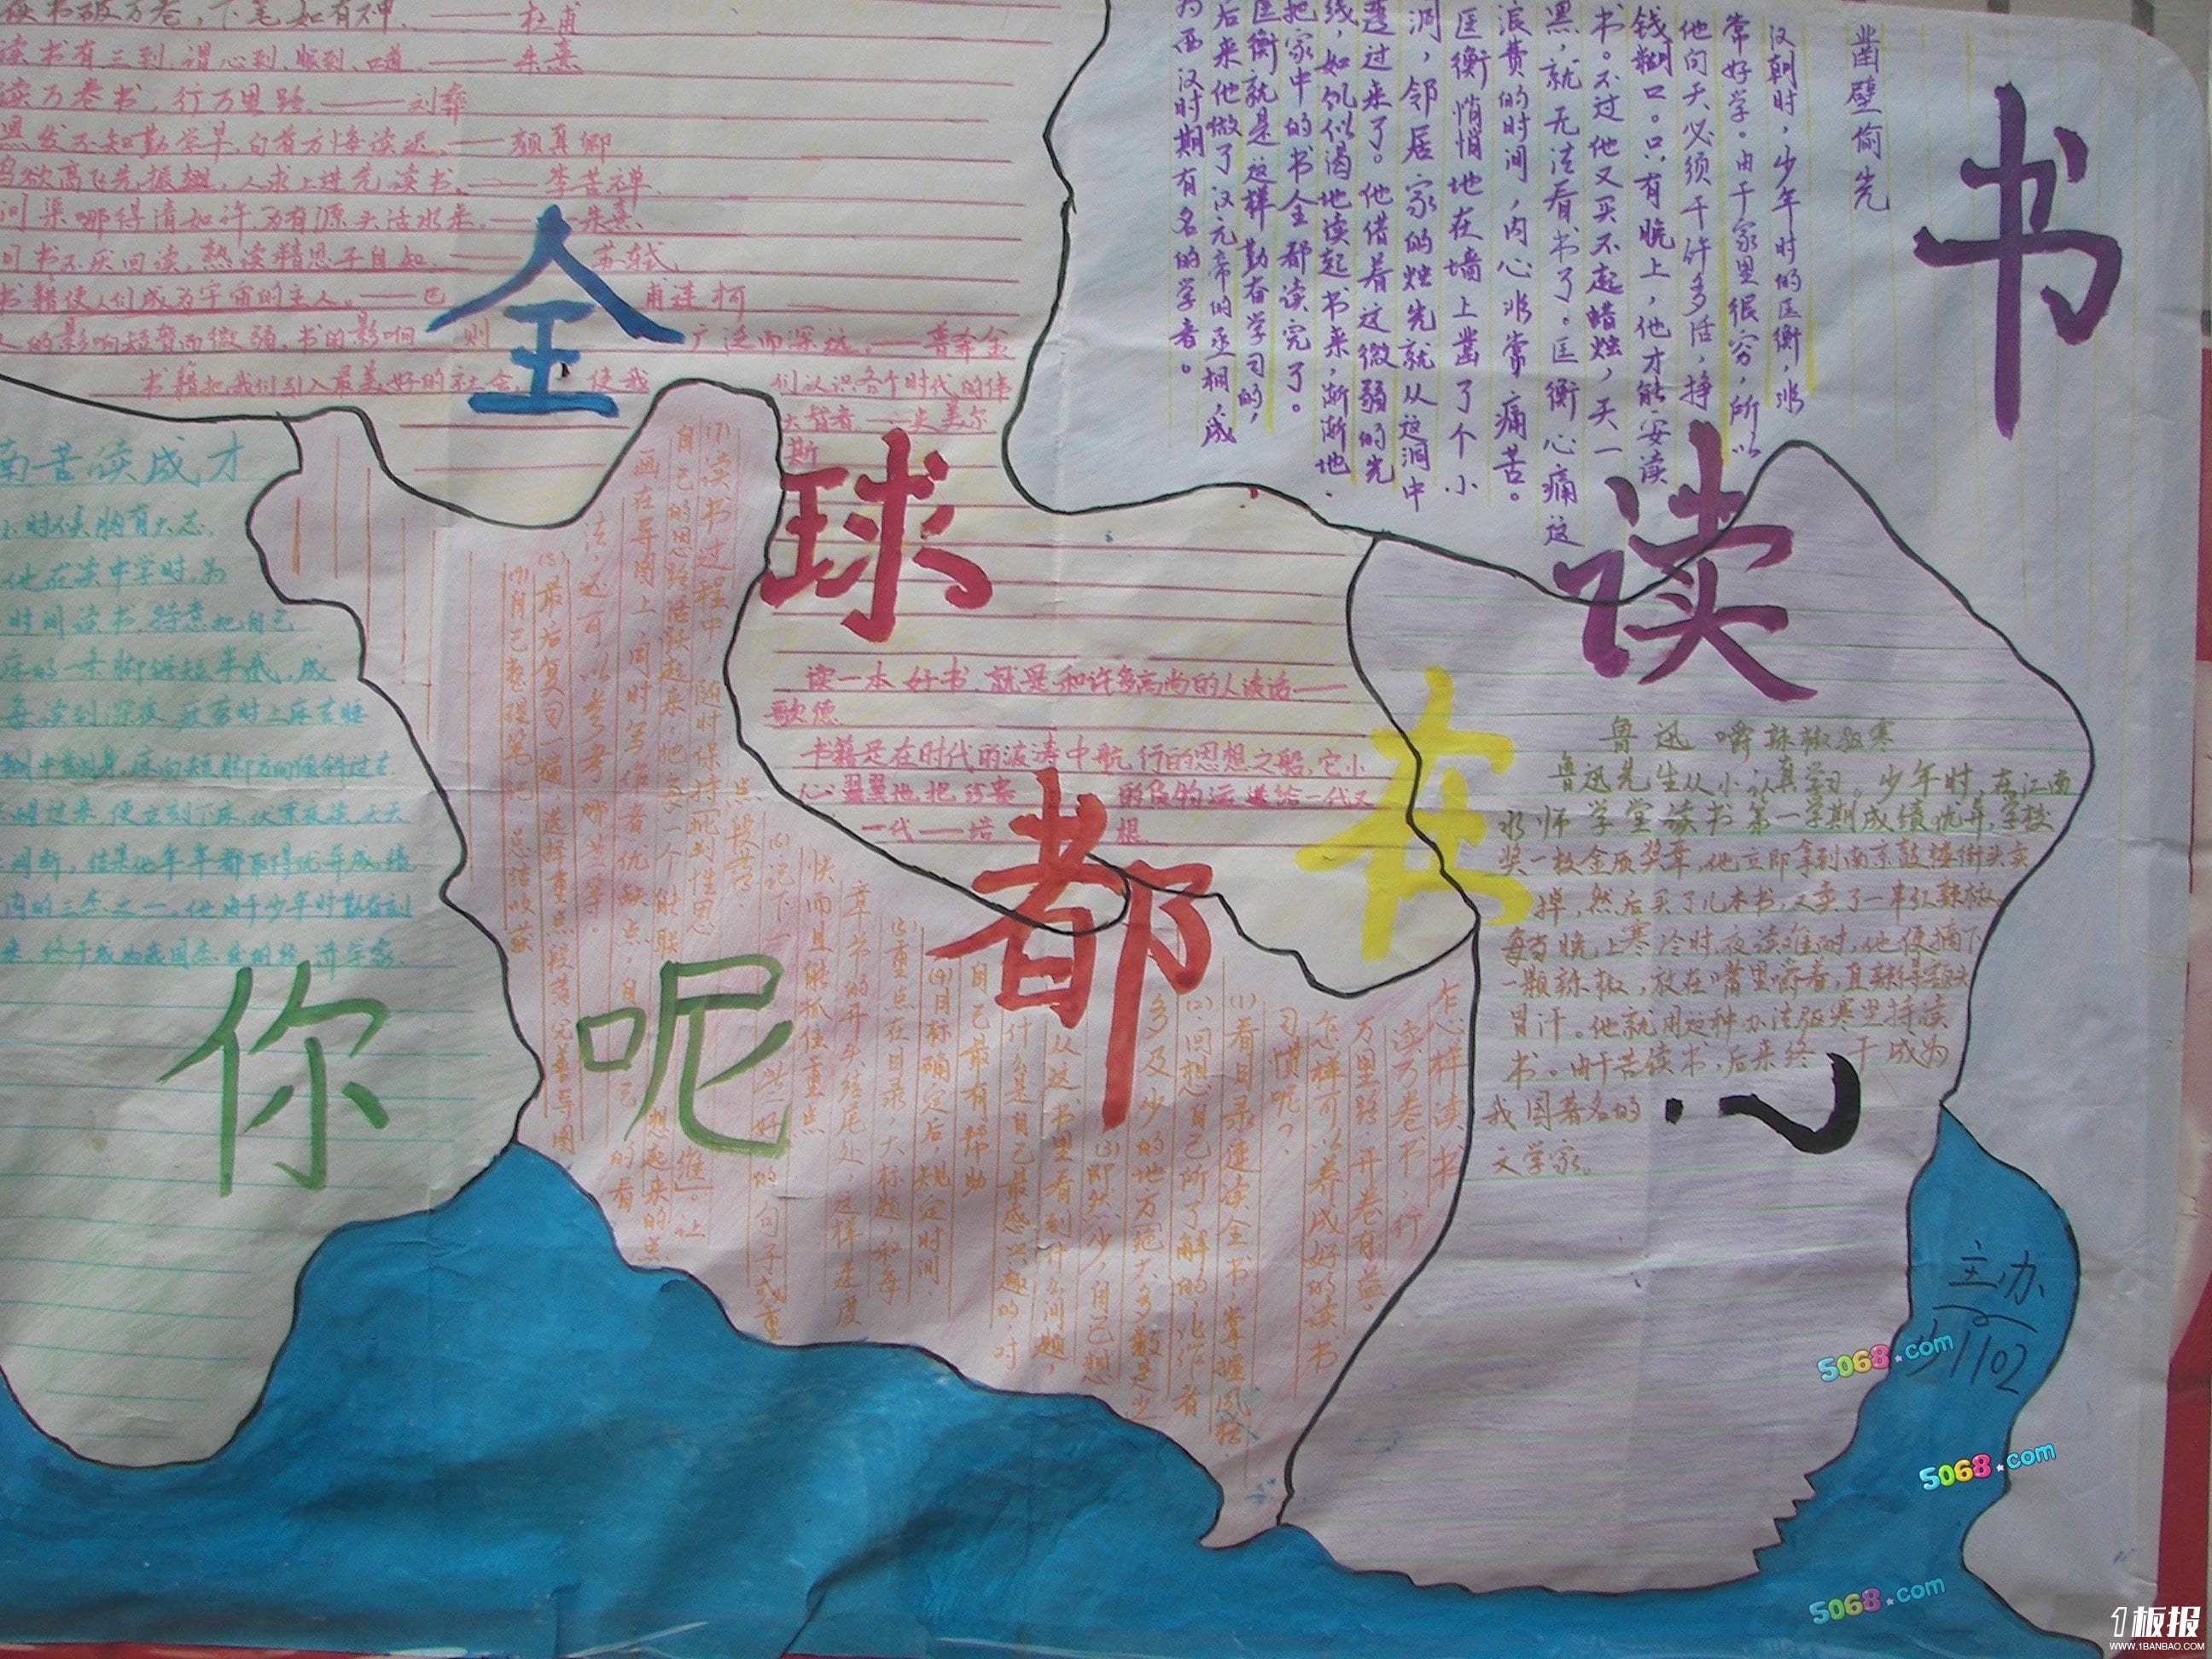 全球都在读书
你呢？
读书破万卷，下笔如有神．——杜甫
读书有三到，谓心到、眼到、口道．——朱熹
读万卷书，行万里路．——刘彝
黑发不知勤学早，白首方悔读迟．——颜真卿
鸟欲高飞先振翅，人求上进先读书．——李苦禅
问渠哪得清如许，为有源头活水来。——朱熹
旧书不厌回读，熟读精思子自知．——苏轼
书籍使人们成为宇宙的主人。——巴甫连柯
人的影响短暂而微弱，书的影响则广泛而深远．——普希金
书籍把我们引入最美好的社会，使我们认识各个时代的伟
大智者．——史美尔
斯
凿壁偷光
汉朝时，少年时的匡衡，非
常好学。由于家里很穷，所以
他问天必须干许多活，挣
钱糊口。只有晚上，他才能安读
书。不过他又买不起蜡烛，天一
黑，就无法看书了。匡衡心痛这
浪费的时间，内心非常痛苦。
匡衡悄悄地在墙上凿了个小
洞，邻居家的烛光就从这洞中
透过来了。他借着这微弱的光
线，如饥似渴地读起书来，渐渐地．
把家中的书全都读完了。
匡衡就是这样勤奋学习的，
后来他做了汉元帝的丞相，成
为西汉时期有名的学者。
读一本好书，就是和许多高尚的人谈话——
歌德
书籍是在时代的波涛中航行的思想之船，它小
心翼翼地把珍贵的货物运送给一代又
一代——培根
鲁迅嚼辣椒驱寒
鲁迅先生从小认真学习。少年时，在江南
水师学堂读书第一学期成绩优异，学校
奖一枚金质奖章，他立即拿到南京鼓楼街头卖
掉，然后买了几本书，又卖了一串红辣椒。
每当晚上寒冷时，夜读难耐，他便摘下
一颗辣椒，放在嘴里嚼着，直辣得额头
冒汗。他就用这种办法驱寒坚持读
书。由于苦读书，后来终于成为
我国著名的
文学家。
南苦读成才
小时候胸有大志．
他在读中学时，为
时间读书，特意把自己
床的一条脚锯短半截，成
每读到深夜，疲劳时上床去睡
醒过来，便立刻下床，伏案夜读，天天
间断，结果他年年都取得优异成绩
内的三杰之一．他由于少年时勤奋刻
来，终于成为我国杰出的经济学家．
怎样读书
读万卷书，行
万里路．开卷有益．
怎样可以养成好的读书
习惯呢？
(1)看目录速读全书，掌握风格
(2)回想自己所了解的，比作者
多及少的地方绝大多数是少
(3)即然少，自己想
从这书里看到什么问题，
什么是自己最感兴趣的对
自己最有帮助
(4)目标确定后，规定时间．
(5)重点在目录，大标题，和每
章节的开头结尾处，这样速度
快而且能抓住重点
(6)记下一些好的句子或重
点段落．
(7)读书过程中，随时保持批判性思
维」．让
自己的思路活跃起来，把每一个能联
想起来的点
画在导图上，同时写作者优缺点，自己
的看
法，还可以参考哪些等。
(8)最后复习一遍，选择重点段落完善导图
(9)自己整理笔记，总结收获
主办
1102
5068.com
5068.com
5068.com
1板报
WWW.1BANBAO.COM